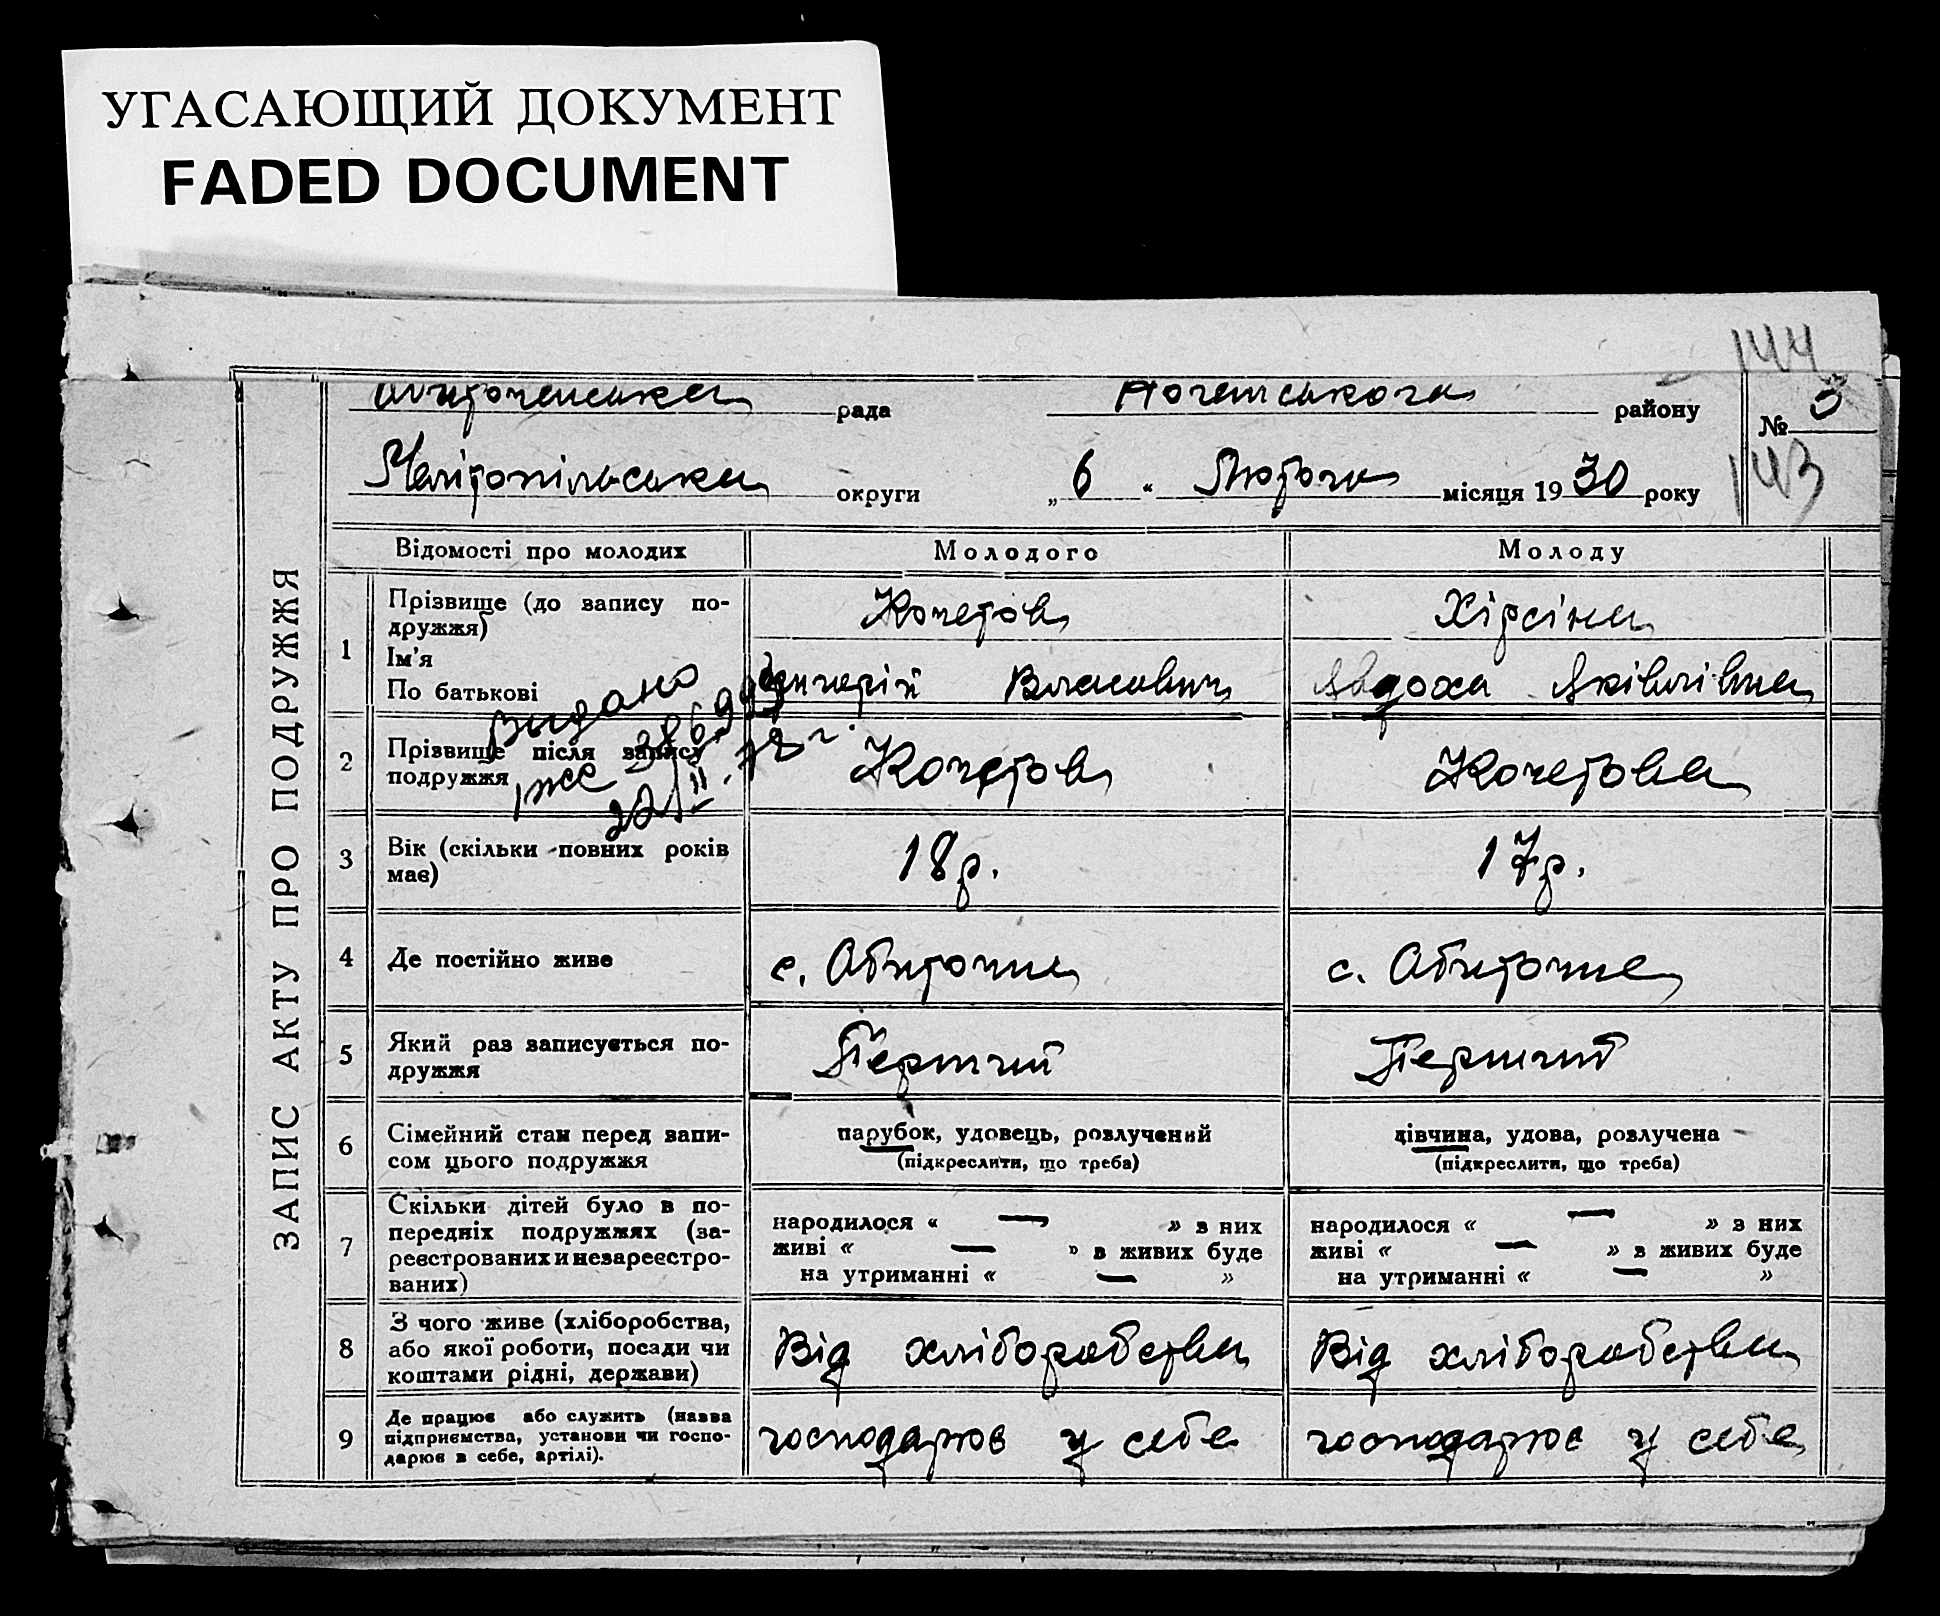 УГАСАЮЩИЙ ДОКУМЕНТ
FADED DOCUMENT
144
рада района району № 3
Мелітопільська округи „ 6 “ Лютого місяця 19 30 року
143
ЗАПИС АКТУ ПРО ПОДРУЖЖЯ
Відомості про молодих
Молодого
Молоду
1
Прізвище (до запису по-
дружжя)
Ім'я
По батькові
Кочетов
Власович
Хірсіна
Авдоха Аківлівна
видано
22/II.
2
Прізвище після запису
подружжя
Кочетов
Кочетова
3
Вік (скільки повних років
має)
18 р.
17 р.
4
Де постійно живе
с. Обиточне
с. Обиточне
5
Який раз записується по-
дружжя
Перший
Перший
6
Сімейний стан перед запи-
сом цього подружжя
парубок, удовець, розлучений
(підкреслити, що треба)
дівчина, удова, розлучена
(підкреслити, що треба)
7
Скільки дітей було в по-
передніх подружжях (за-
реєстрованих и незареєстро-
ваних)
народилося « — » з них
живі « — » в живих буде
на утриманні « — »
народилося « — » з них
живі « — » в живих буде
на утриманні « — »
8
З чого живе (хліборобства,
або якої роботи, посади чи
коштами рідні, держави)
Від хліборобства
Від хліборобства
9
Де працює або служить (назва
підприємства, установи чи госпо-
дарює в себе, артілі).
господарює у себе
господарює у себе